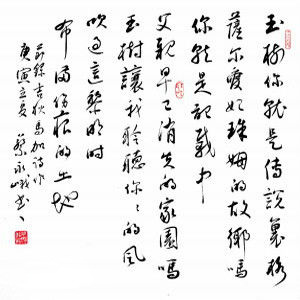 玉樹你就是傳說裏格
薩尔愛妃珠姆的故鄉嗎
你就是記載中
父親早已消失的家園嗎
玉樹讓我聆聽你〻的風
吹過這黎明時
布滿伤痕的土地
節錄吉狄馬加詩作
庚寅立夏 蔡永峨书